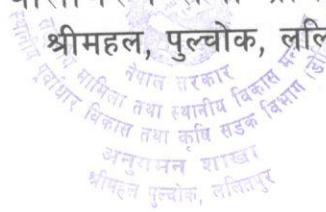 श्रीमहल, पुल्चोक, ललि
नेपाल सरकार
मामिला तथा स्थानीय विकास
स्थानीय पूर्वाधार विकास तथा कृषि सडक विभाग
अनुगमन शाखा
श्रीमहल पुल्चोक, ललितपुर